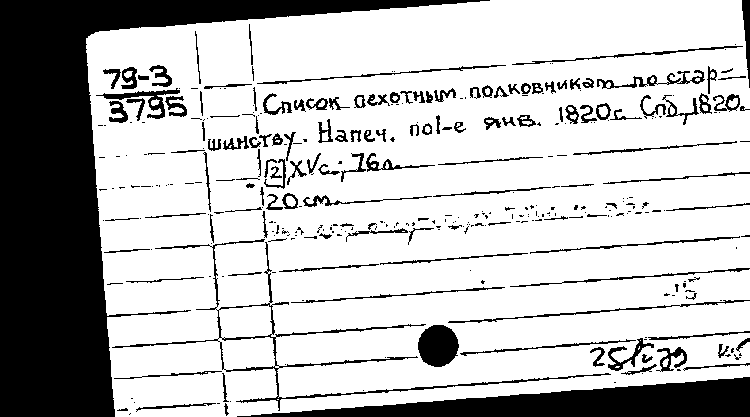 79-3
3795
Список пехотным полковникам по стар-
шинству. Напеч. по 1-е янв. 1820 г. Спб, 1820.
[2], XV с.; 76 л.
20 см.